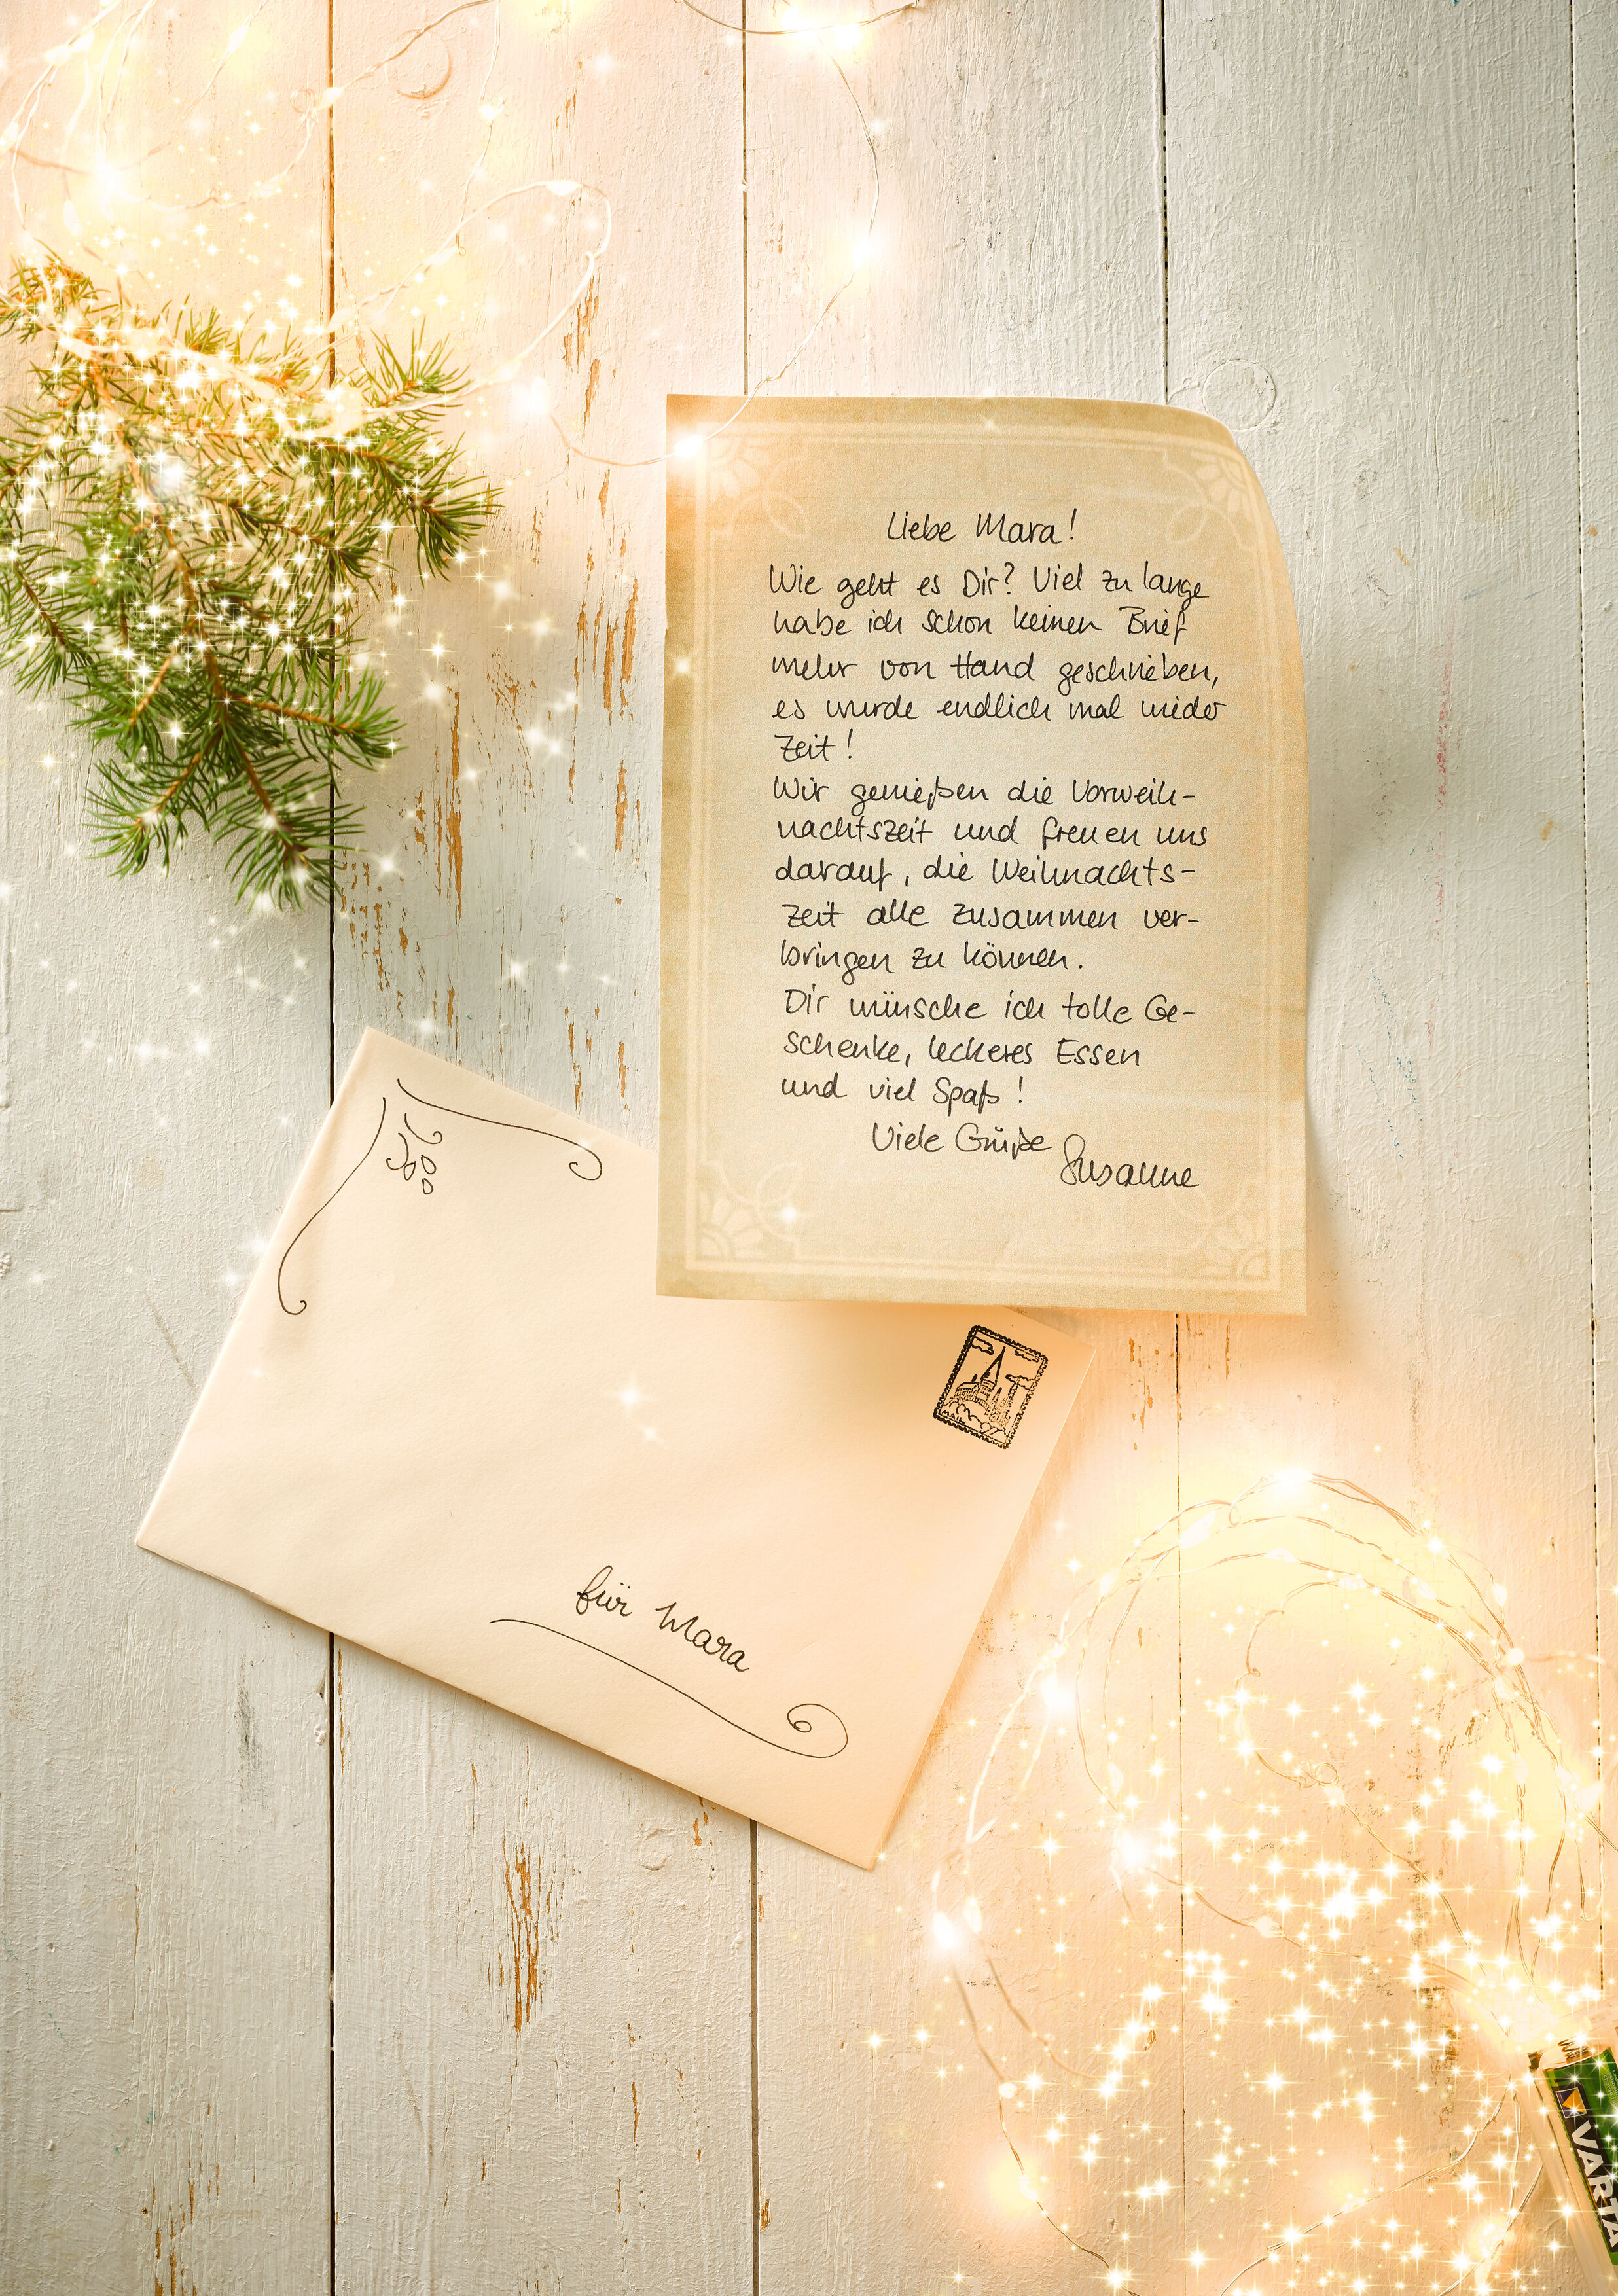 Liebe Mara!
Wie geht es Dir? Viel zu lange
habe ich schon keinen Brief
mehr von Hand geschrieben,
es wurde endlich mal wieder
Zeit!
Wir genießen die Vorweih-
nachtszeit und freuen uns
darauf, die Weihnachts-
zeit alle zusammen ver-
bringen zu können.
Dir wünsche ich tolle Ge-
schenke, leckeres Essen
und viel Spaß!
Viele Grüße
Susanne
für Mara
VARTA